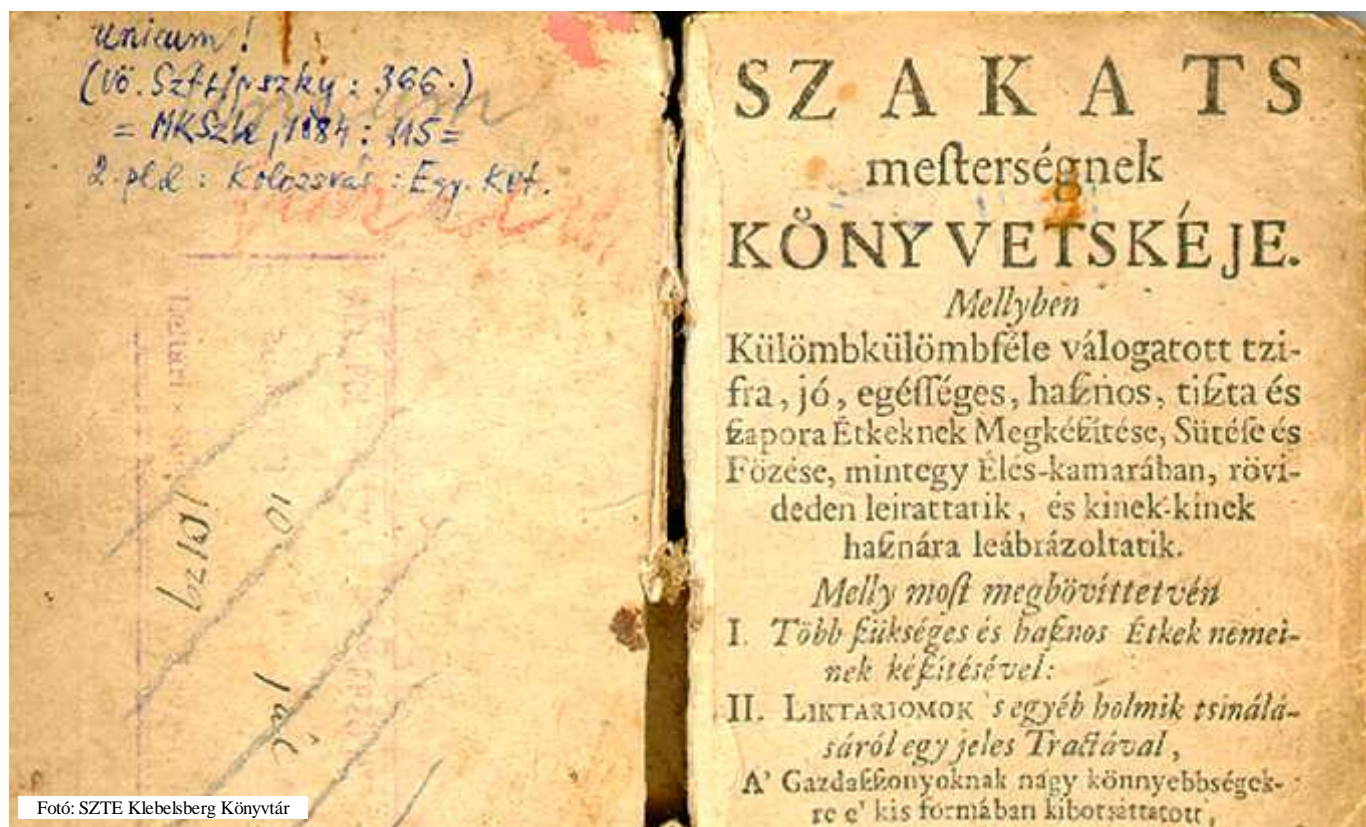 unicum!
(Vö. Sztripszky: 366.)
= MKSzle, 1884: 115=
2. pld: Kolozsvár: Egy. Kvt.
Fotó: SZTE Klebelsberg Könyvtár
SZAKATS
meſterségnek
KÖNYVETSKÉJE.
Mellyben
Külömbkülömbféle válogatott tzi-
fra, jó, egéſſéges, haſznos, tiſzta és
ſzapora Étkeknek Megkéſzítése, Sütéſe és
Főzése, mintegy Élés-kamarában, rövi-
dedén leirattatik, és kinek-kinek
haſznára leábrázoltatik.
Melly moſt megbövíttetvén
I. Több ſzükséges és haſznos Étkek nemei-
nek kéſzitésével:
II. LIKTARIOMOK 's egyéb holmik tsinálá-
sáról egy jeles Tractával,
A' Gazdaſſzonyoknak nagy könnyebbségek-
re e' kis formában kibotsáttatott,